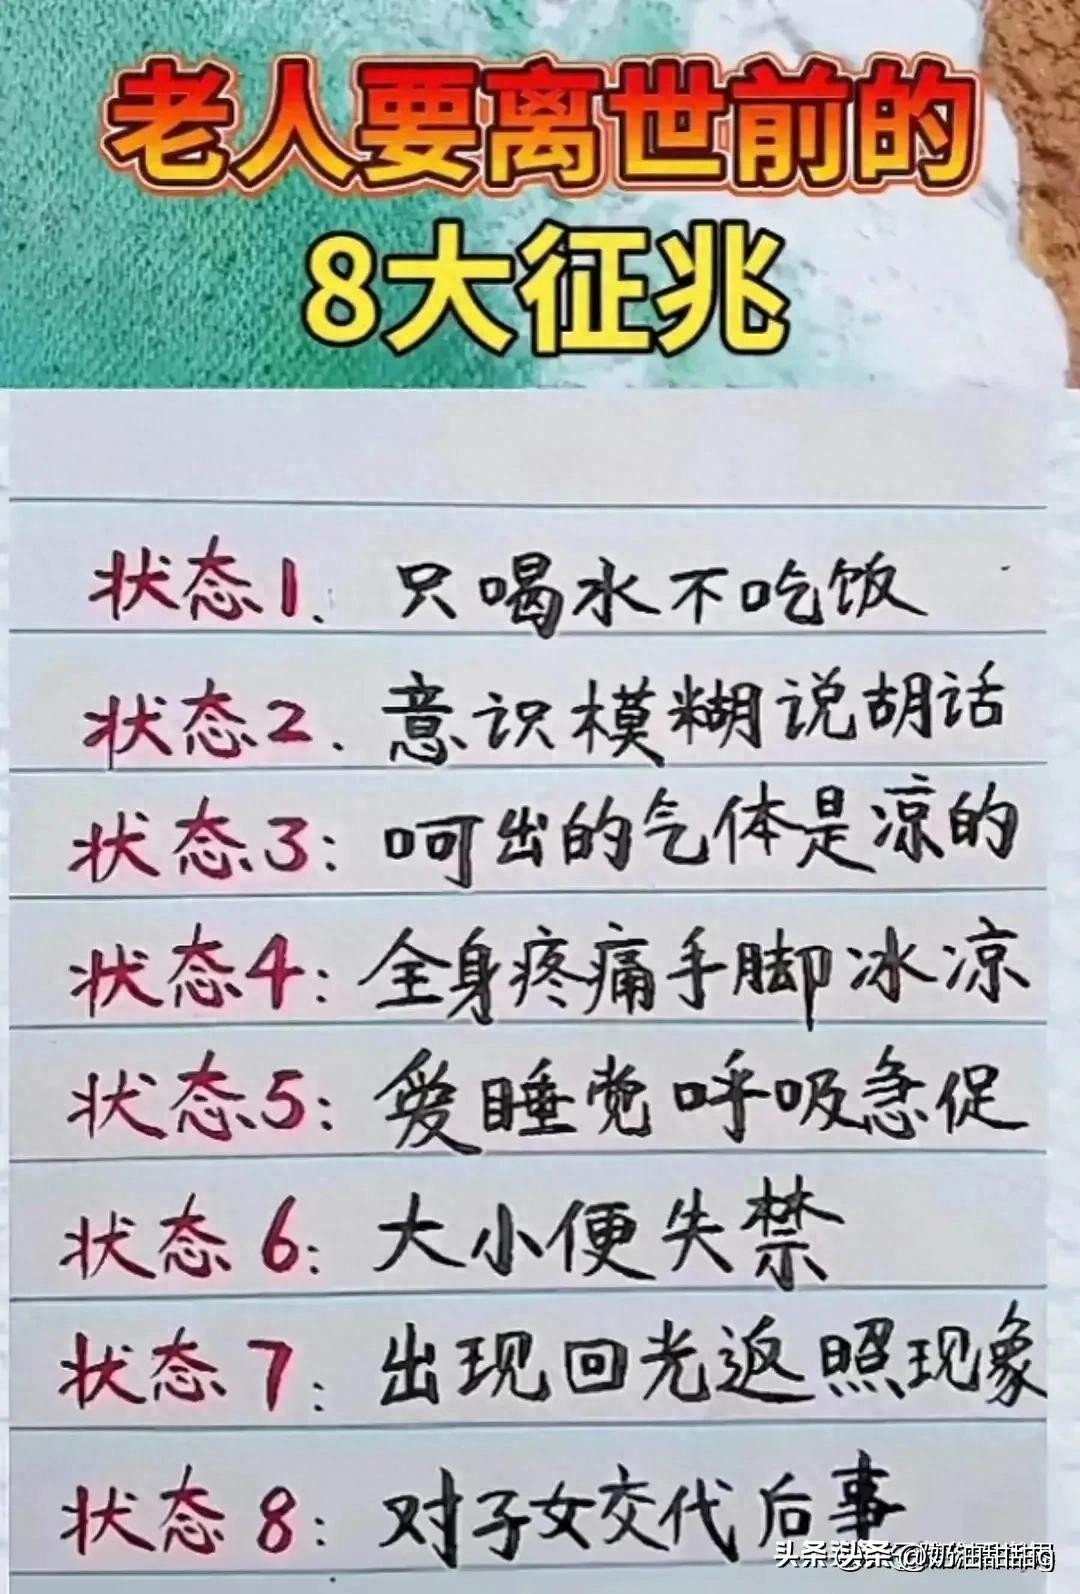 老人要离世前的
8大征兆
状态1、只喝水不吃饭
状态2、意识模糊说胡话
状态3：呵出的气体是凉的
状态4：全身疼痛手脚冰凉
状态5：爱睡觉呼吸急促
状态6：大小便失禁
状态7：出现回光返照现象
状态8：对子女交代后事